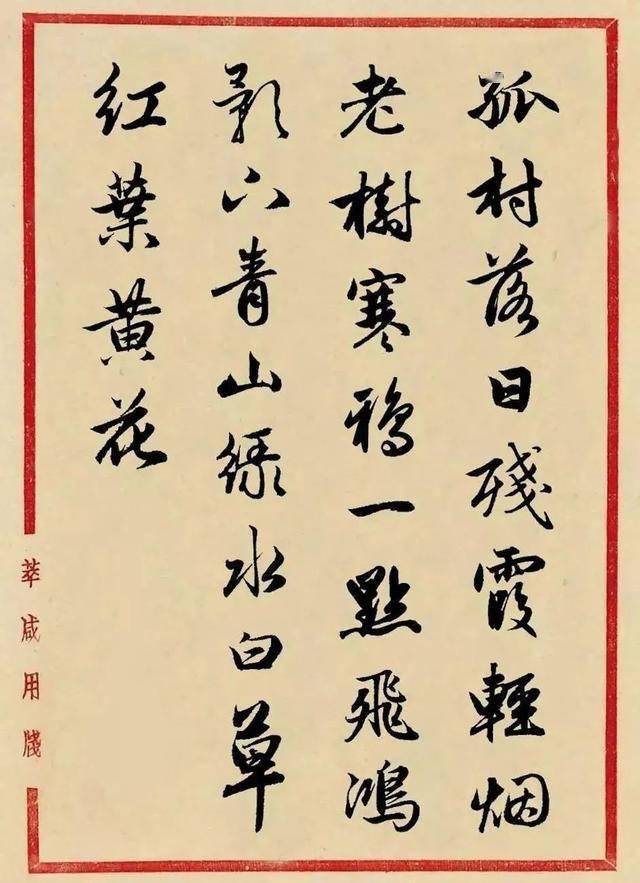 孤村落日殘霞輕烟
老樹寒鴉一點飛鴻
影下青山綠水白草
紅葉黃花
莘咸用牋